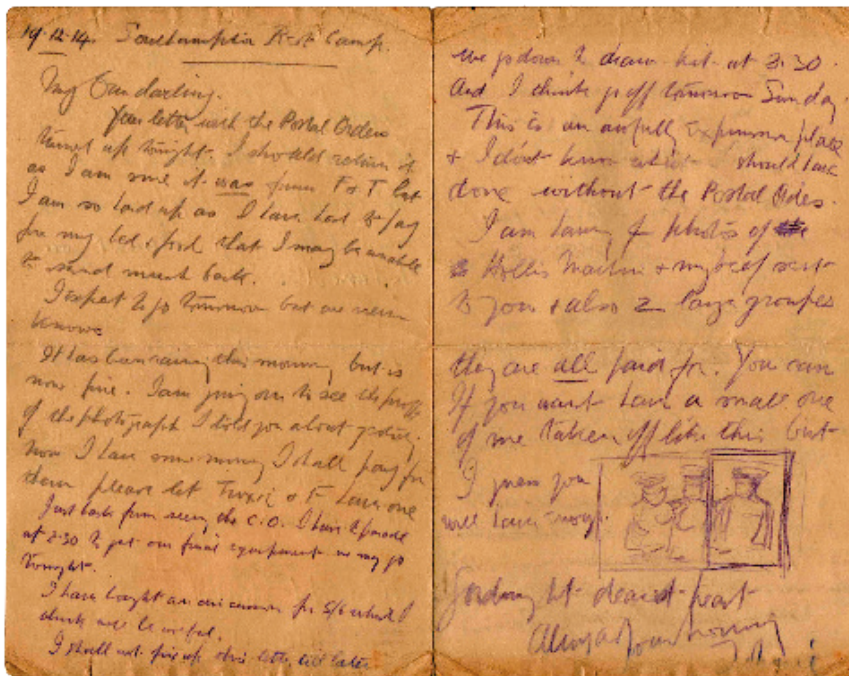 19.12.14. Southampton Rest Camp.
My Own darling.
Your letter with the Postal Orders
turned up tonight. I should return it
as I am sure it was from F & T but
I am so hard up as I have had to pay
for my bed & food that I may be unable
to send much back.
I expect to go tomorrow but one never
knows
It has been raining this morning but is
now fine. I am going on to see the proofs
of the photograph I told you about yesterday.
Now I have some money I shall pay for
them please let & F have one
Just back from seeing the C.O. I have to parade
at 2.30 to get our final equipment we may go
tonight.
I have bought an for 5/6 which I
think will be useful.
I shall not fix up this letter till later
we go down to draw kit at 3.30.
And I think go off tomorrow Sunday
This is an awfull place
& I don't know what I should have
done without the Postal Orders.
I am having photos of
Hollis Martin & myself sent
to you & also 2 large groupes
they are all paid for. You can
If you want have a small one
of me taken off like this but
I guess you
will have enough.
dearest heart
Always Your loving